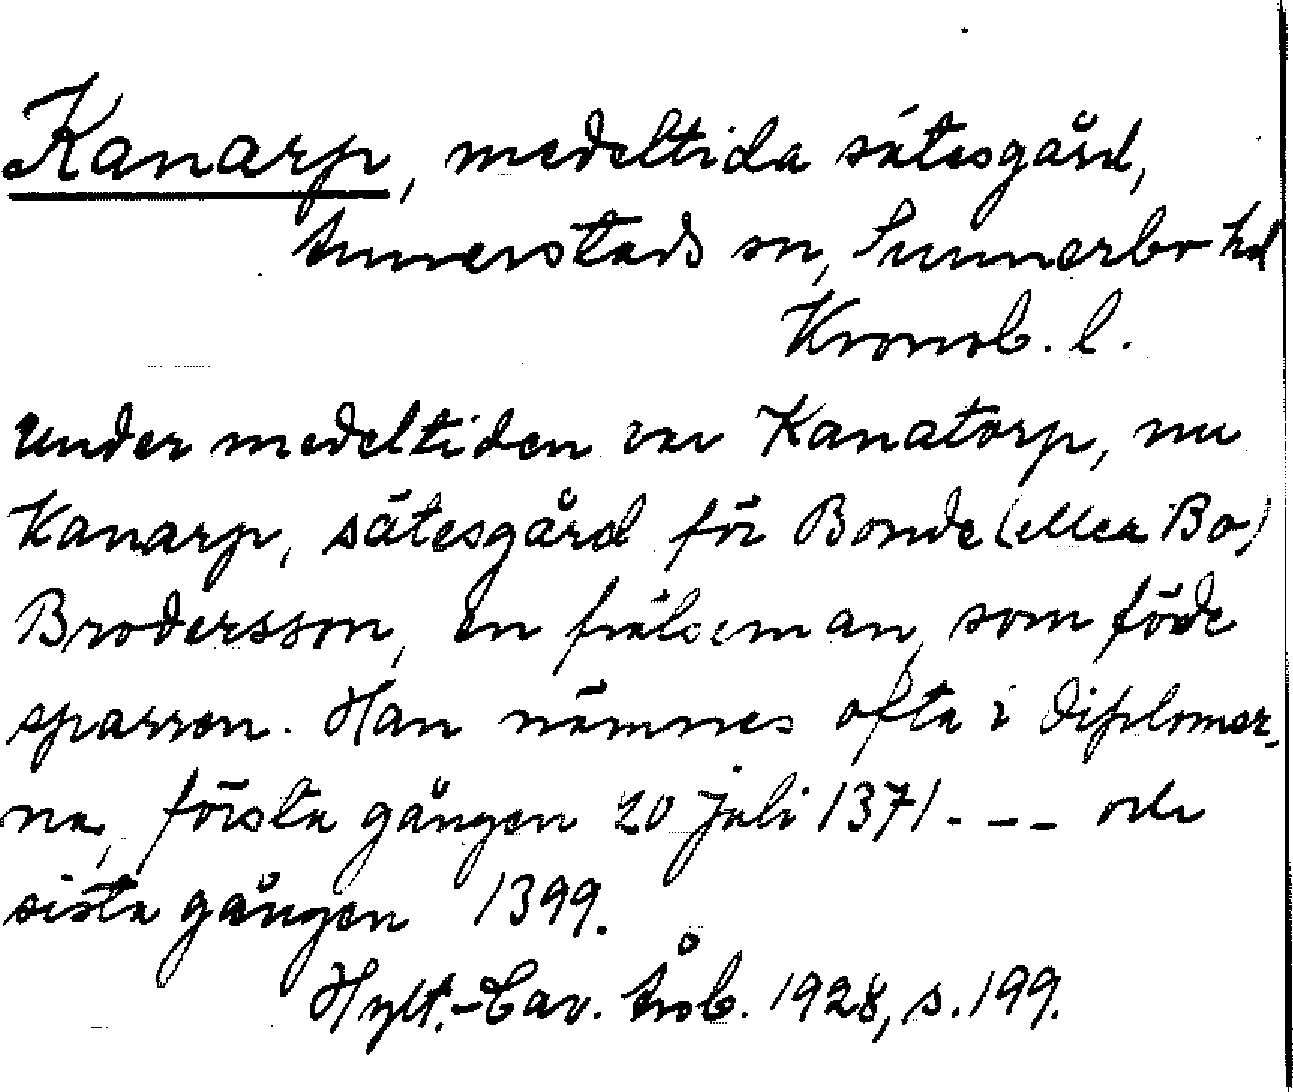 Kanarp, medeltida sätesgård,
Annerstads sn, Sunnerbo hd
Kronob. l.
Under medeltiden var Kanatorp, nu
Kanarp, sätesgård för Bonde (eller Bo)
Brodersson, en frälseman, som förde
sparren. Han nämnes ofta i diplomer-
na, första gången 20 juli 1371 - - - och
sista gången 1399.
Hylt.-Cav. årsb. 1928, s. 199.